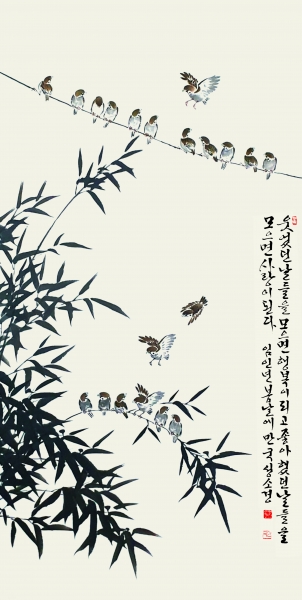 웃었던 날들을 모으면 행복이 되고 좋아했던 날들을
모으면 사랑이 된다 임인년 봄날에 만국 심소경